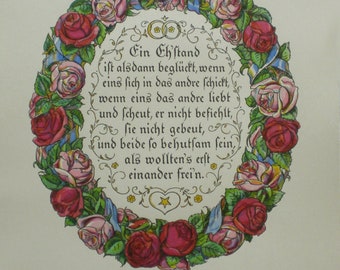 Ein Ehstand
ist alsdann beglückt, wenn
eins sich in das andre schickt,
wenn eins das andre liebt
und scheut, er nicht befiehlt,
sie nicht gebeut,
und beide so behutsam sein,
als wollten's erst
einander frei'n.